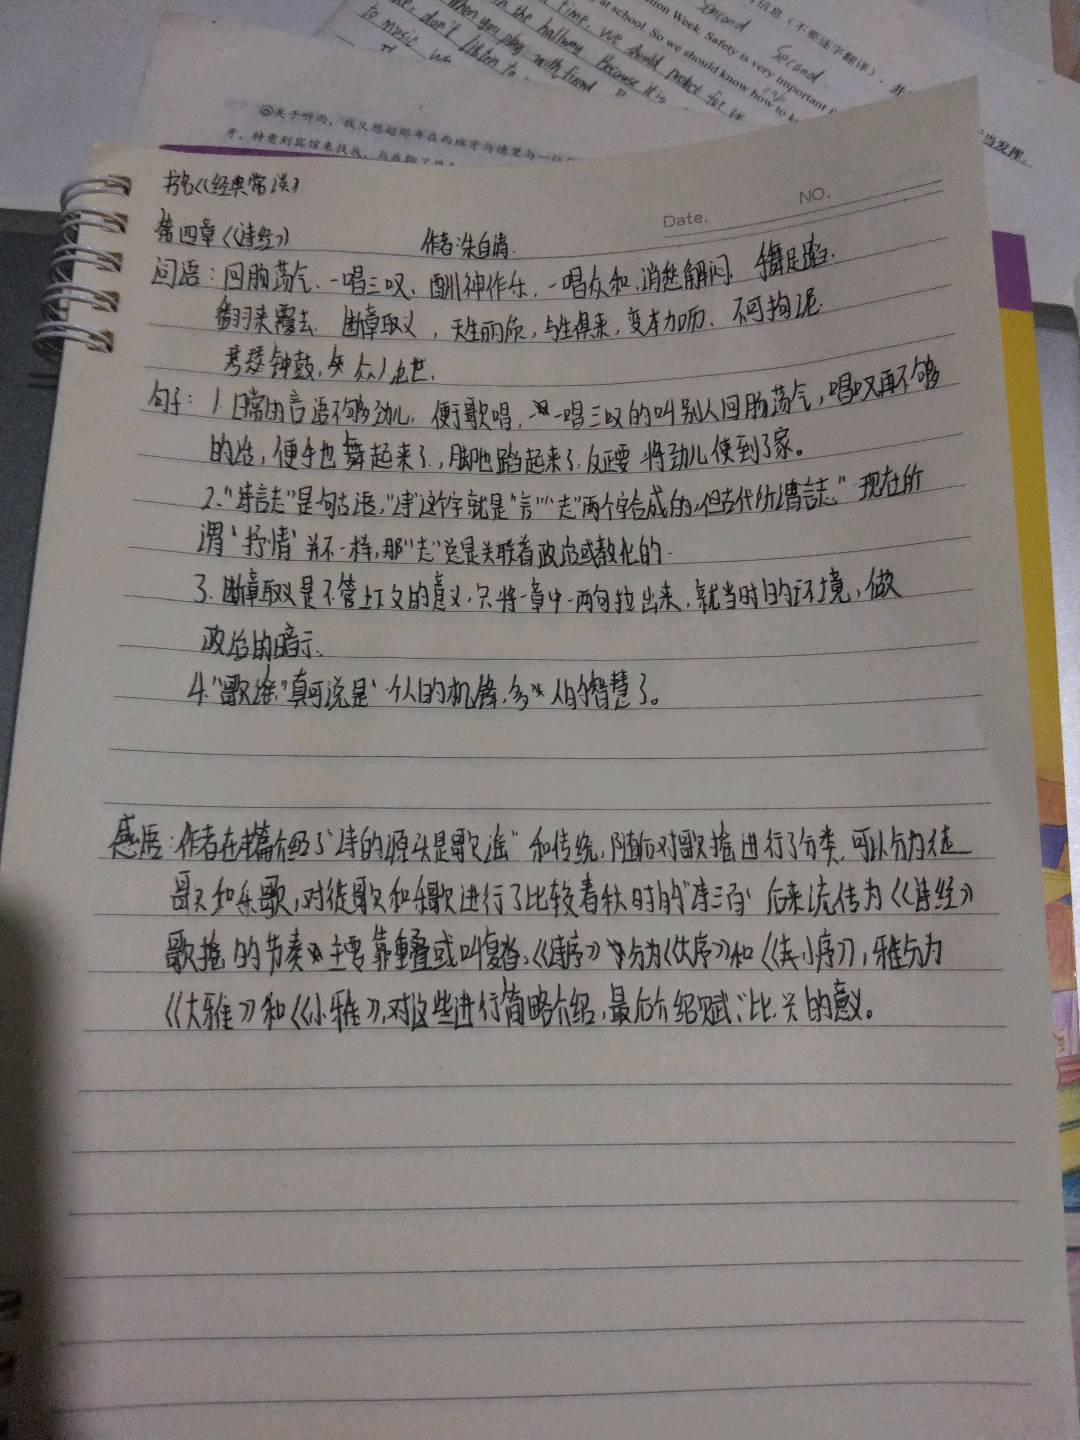 信息（不要逐字翻译），并
Second
Second
ation Week. Safety is very important
at school. So we should know how to k
time. we should protect
in the hallway. Because it is
When you play with friend
don't listen to
to music
当发挥。
⑥关于听雨，我又想起那年在西班牙马德里与一位
Date.
NO.
书名《经典常谈》
第四章《诗经》 作者:朱自清.
词语：回肠荡气、一唱三叹、酬神作乐、一唱众和、消愁解闷、手舞足蹈、
翻来覆去、断章取义，天生丽质，与生俱来，变本加厉、不可拘泥
钟鼓,
句子：1.日常的言语不够劲儿，便于歌唱，一唱三叹的叫别人回肠荡气，唱叹再不够
的话，便手也舞起来了，脚也蹈起来了，反正要将劲儿使到了家。
2.“诗言志”是句古语，“诗”这个字就是“言”“志”两个字合成的，但古代所谓言志”现在所
谓‘抒情’并不一样，那“志”总是关联着政治或教化的.
3.断章取义是不管上下文的意义，只将一章中一两句拉出来，就当时的环境，做
政治的暗示.
4.“歌谣”真可说是‘一个人的机锋，多人的智慧了。
感悟：作者在本篇介绍了“诗的源头是歌谣”和传统，随后对歌摇进行了分类，可以分为徒
歌和乐歌，对徒歌和乐歌进行了比较春秋时的‘诗三百’后来流传为《诗经》
歌摇的节奏主要靠重叠或叫复沓，《诗序》分为《大序》和《小序》，雅分为
《大雅》和《小雅》，对这些进行简略介绍，最后介绍赋、比、兴的意义。